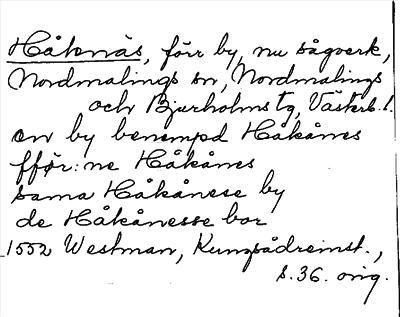 Håknäs, förr by, nu sågverk,
Nordmalings sn, Nordmalings
och Bjurholms tg, Västerb. l.
en by benempd Håkånes
ffför: ne Håkånes
sama Håkånese by
de Håkånesse bor
1552 Westman, Kungsådreinst.,
s. 36. orig.